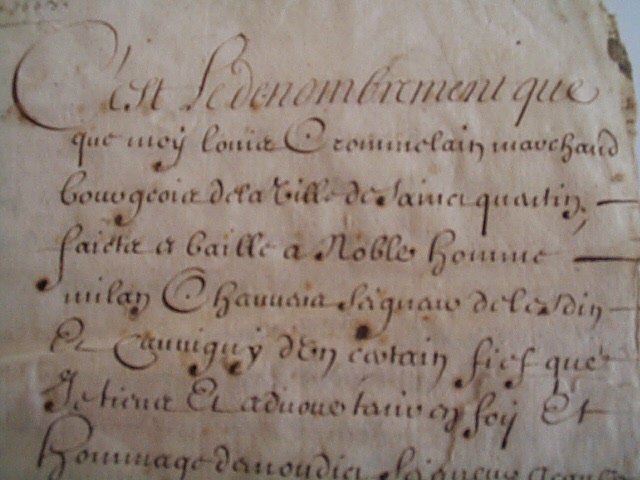 C'est Le denombrement que
que moÿ louis Crommelain marchand
bourgeois dela Ville de Sainct quentin,
faicts et baille a Noble homme
milan Chauvais Seigneur de lesdin
Et Cauvigny d'un certain fief que
Je tiens Et advoue tenir en foy Et
hommage demondict Seigneur